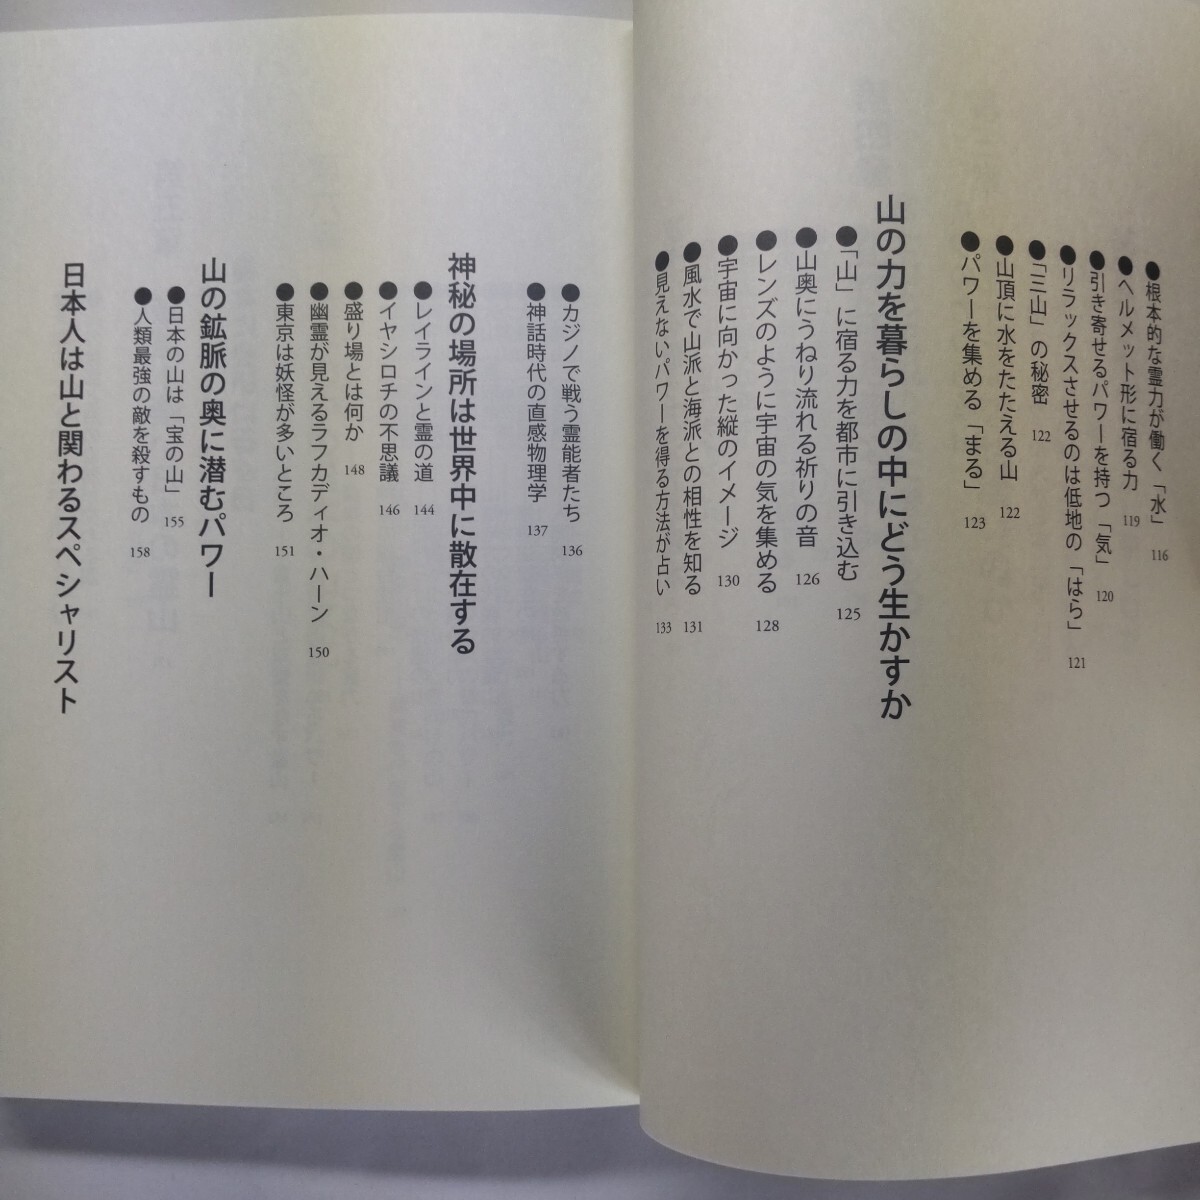 ●根本的な霊力が働く「水」 116
●ヘルメット形に宿る力 119
●引き寄せるパワーを持つ「気」 120
●リラックスさせるのは低地の「はら」 121
●「三山」の秘密 122
●山頂に水をたたえる山 122
●パワーを集める「まる」 123
山の力を暮らしの中にどう生かすか
●「山」に宿る力を都市に引き込む 125
●山奥にうねり流れる祈りの音 126
●レンズのように宇宙の気を集める 128
●宇宙に向かった縦のイメージ 130
●風水で山派と海派との相性を知る 131
●見えないパワーを得る方法が占い 133
●カジノで戦う霊能者たち 136
●神話時代の直感物理学 137
神秘の場所は世界中に散在する
●レイラインと霊の道 144
●イヤシロチの不思議 146
●盛り場とは何か 148
●幽霊が見えるラフカディオ・ハーン 150
●東京は妖怪が多いところ 151
山の鉱脈の奥に潜むパワー
●日本の山は「宝の山」 155
●人類最強の敵を殺すもの 158
日本人は山と関わるスペシャリスト